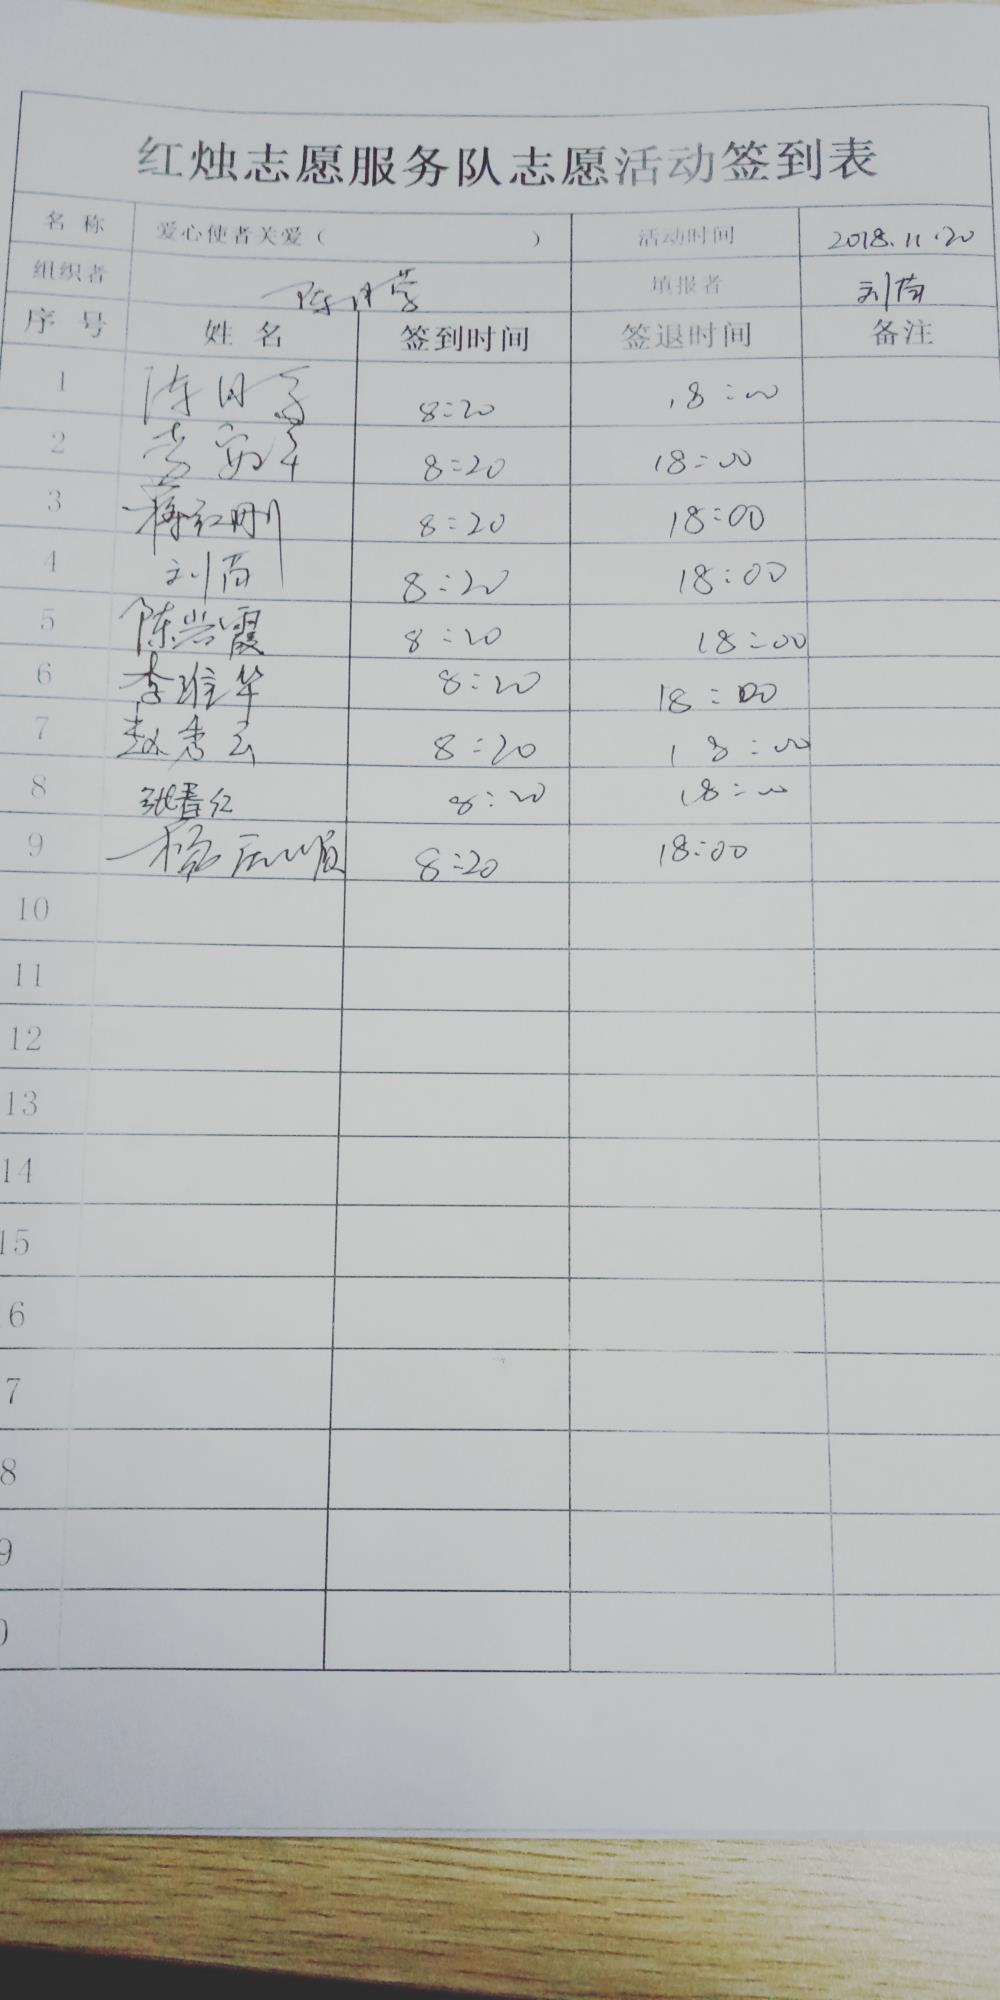 红烛志愿服务队志愿活动签到表
名 称 爱心使者关爱（ ） 活动时间 2018.11.20
组织者 陈 填报者 刘
序 号 姓 名 签到时间 签退时间 备注
1 陈 8:20 18:00
2 8:20 18:00
3 蒋红刚 8:20 18:00
4 刘 8:20 18:00
5 陈兴霞 8:20 18:00
6 李维华 8:20 18:00
7 赵秀云 8:20 18:00
8 张春红 8:20 18:00
9 杨 8:20 18:00
10
11
12
13
14
15
6
7
8
9